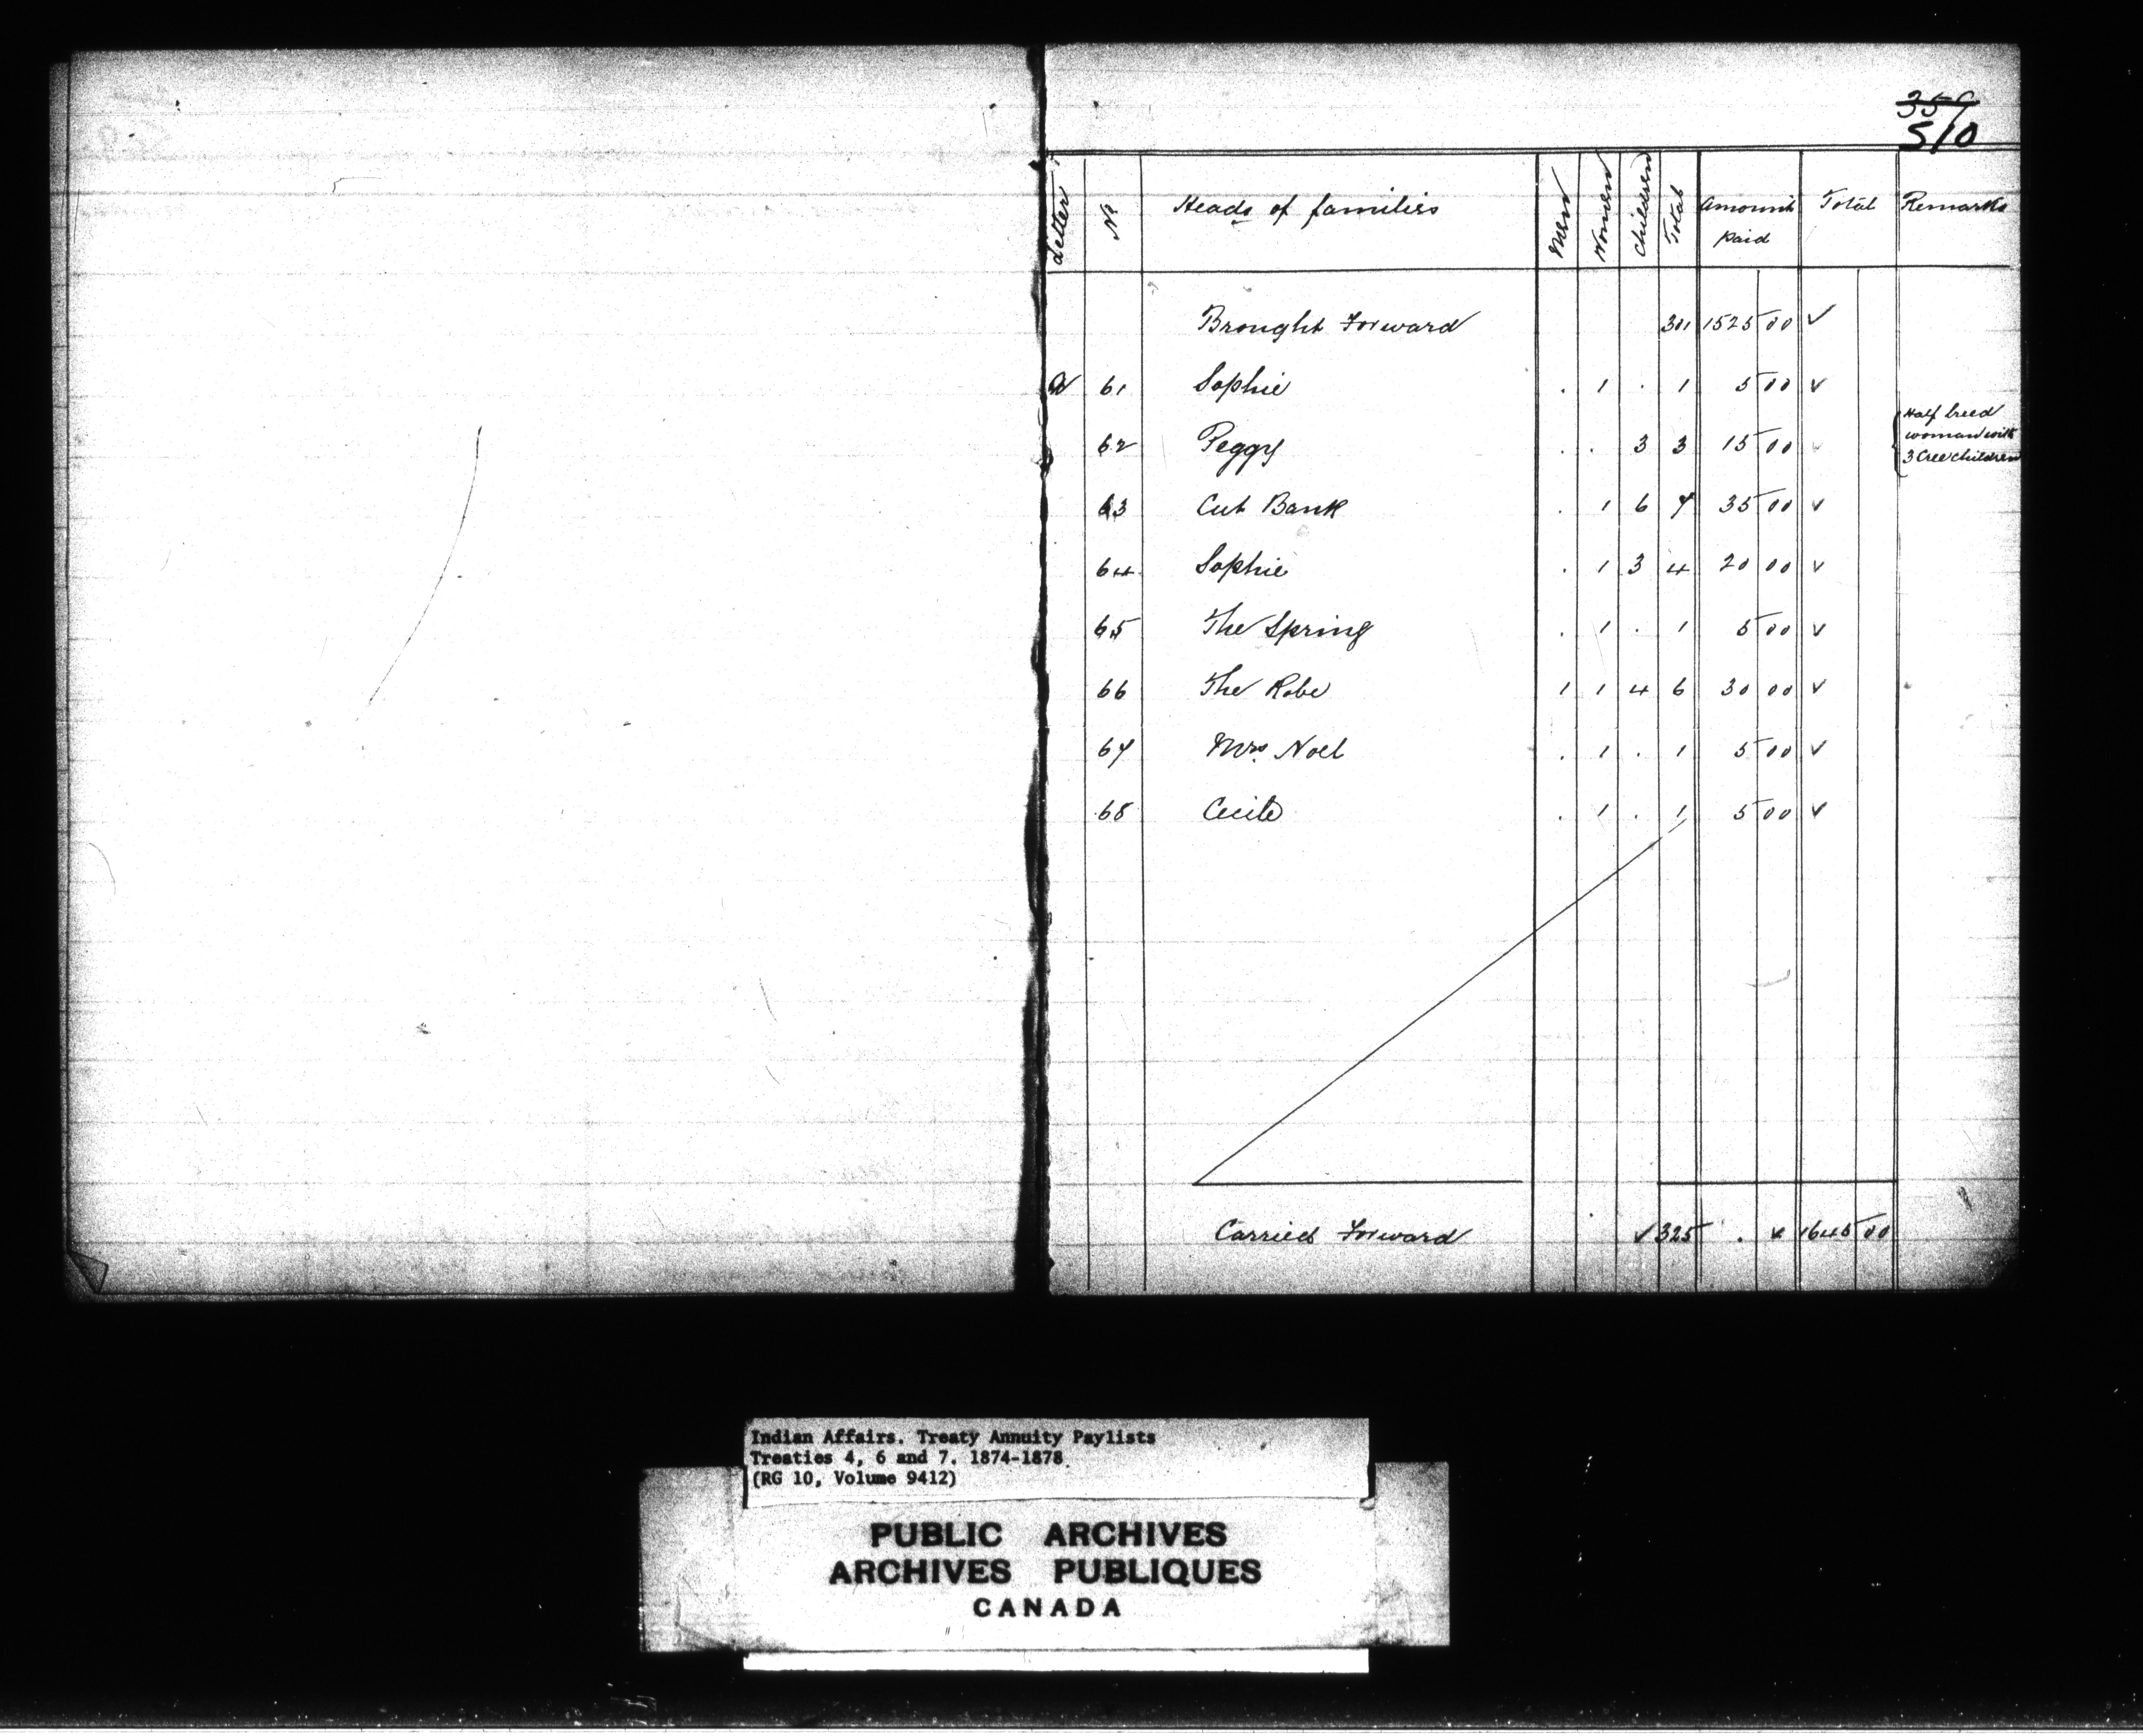 359
510
Letter Nº Heads of families Men Women Children Total Amount paid Total Remarks
Brought Forward 301 1525 00 ✓
61 Sophie . 1 . 1 5 00 ✓
62 Peggy . . 3 3 15 00 ✓ Half breed woman with 3 Cree children
63 Cut Bank . 1 6 7 35 00 ✓
64 Sophie . 1 3 4 20 00 ✓
65 The Spring . 1 . 1 5 00 ✓
66 The Robe 1 1 4 6 30 00 ✓
67 Mrs. Noel . 1 . 1 5 00 ✓
68 Cecile . 1 . 1 5 00 ✓
Carried Forward ✓ 325 . ✓ 1645 00
Indian Affairs. Treaty Annuity Paylists
Treaties 4, 6 and 7. 1874-1878
(RG 10, Volume 9412)
PUBLIC ARCHIVES
ARCHIVES PUBLIQUES
CANADA